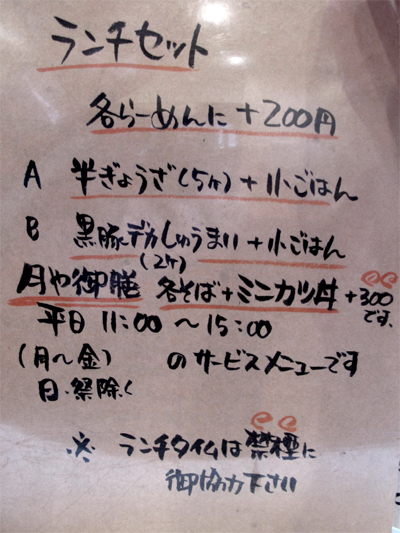 ランチセット
各らーめんに+200円
A 半ぎょうざ(5ヶ)+小ごはん
B 黒豚デカしゅうまい+小ごはん
(2ヶ)
月や御膳 各そば+ミニカツ丼+300
です。
平日 11:00～15:00
(月～金) のサービスメニューです
日・祭除く
※ ランチタイムは禁煙に
御協力下さい